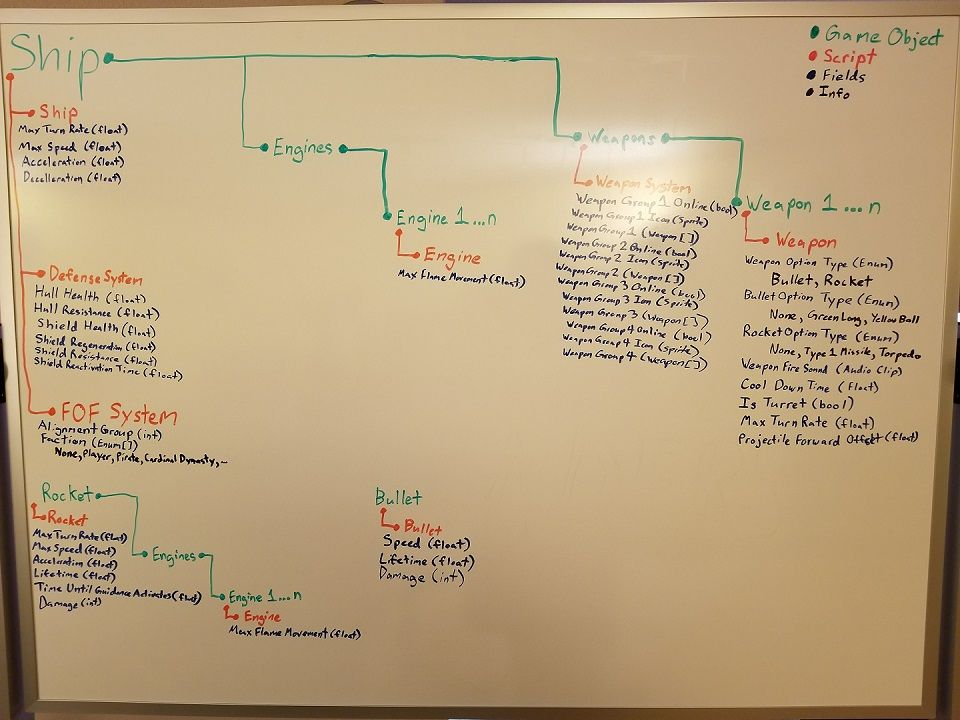 Ship
Game Object
Script
Fields
Info
Ship
Max Turn Rate (float)
Max Speed (float)
Acceleration (float)
Decelleration (float)
Defense System
Hull Health (float)
Hull Resistance (float)
Shield Health (float)
Shield Regeneration (float)
Shield Resistance (float)
Shield Reactivation Time (float)
FOF System
Alignment Group (int)
Faction (Enum[])
None, Player, Pirate, Cardinal Dynasty, ~
Engines
Engine 1...n
Engine
Max Flame Movement (float)
Weapons
Weapon System
Weapon Group 1 Online (bool)
Weapon Group 1 Icon (Sprite)
Weapon Group 1 (Weapon[])
Weapon Group 2 Online (bool)
Weapon Group 2 Icon (Sprite)
Weapon Group 2 (Weapon[])
Weapon Group 3 Online (bool)
Weapon Group 3 Icon (Sprite)
Weapon Group 3 (Weapon[])
Weapon Group 4 Online (bool)
Weapon Group 4 Icon (Sprite)
Weapon Group 4 (Weapon[])
Weapon 1...n
Weapon
Weapon Option Type (Enum)
Bullet, Rocket
Bullet Option Type (Enum)
None, Green Long, Yellow Ball
Rocket Option Type (Enum)
None, Type 1 Missile, Torpedo
Weapon Fire Sound (Audio Clip)
Cool Down Time (Float)
Is Turret (bool)
Max Turn Rate (float)
Projectile Forward (float)
Rocket
Rocket
Max Turn Rate (float)
Max Speed (float)
Acceleration (float)
Lifetime (float)
Time Until Guidance Activates (float)
Damage (int)
Engines
Engine 1...n
Engine
Max Flame Movement (float)
Bullet
Bullet
Speed (float)
Lifetime (float)
Damage (int)